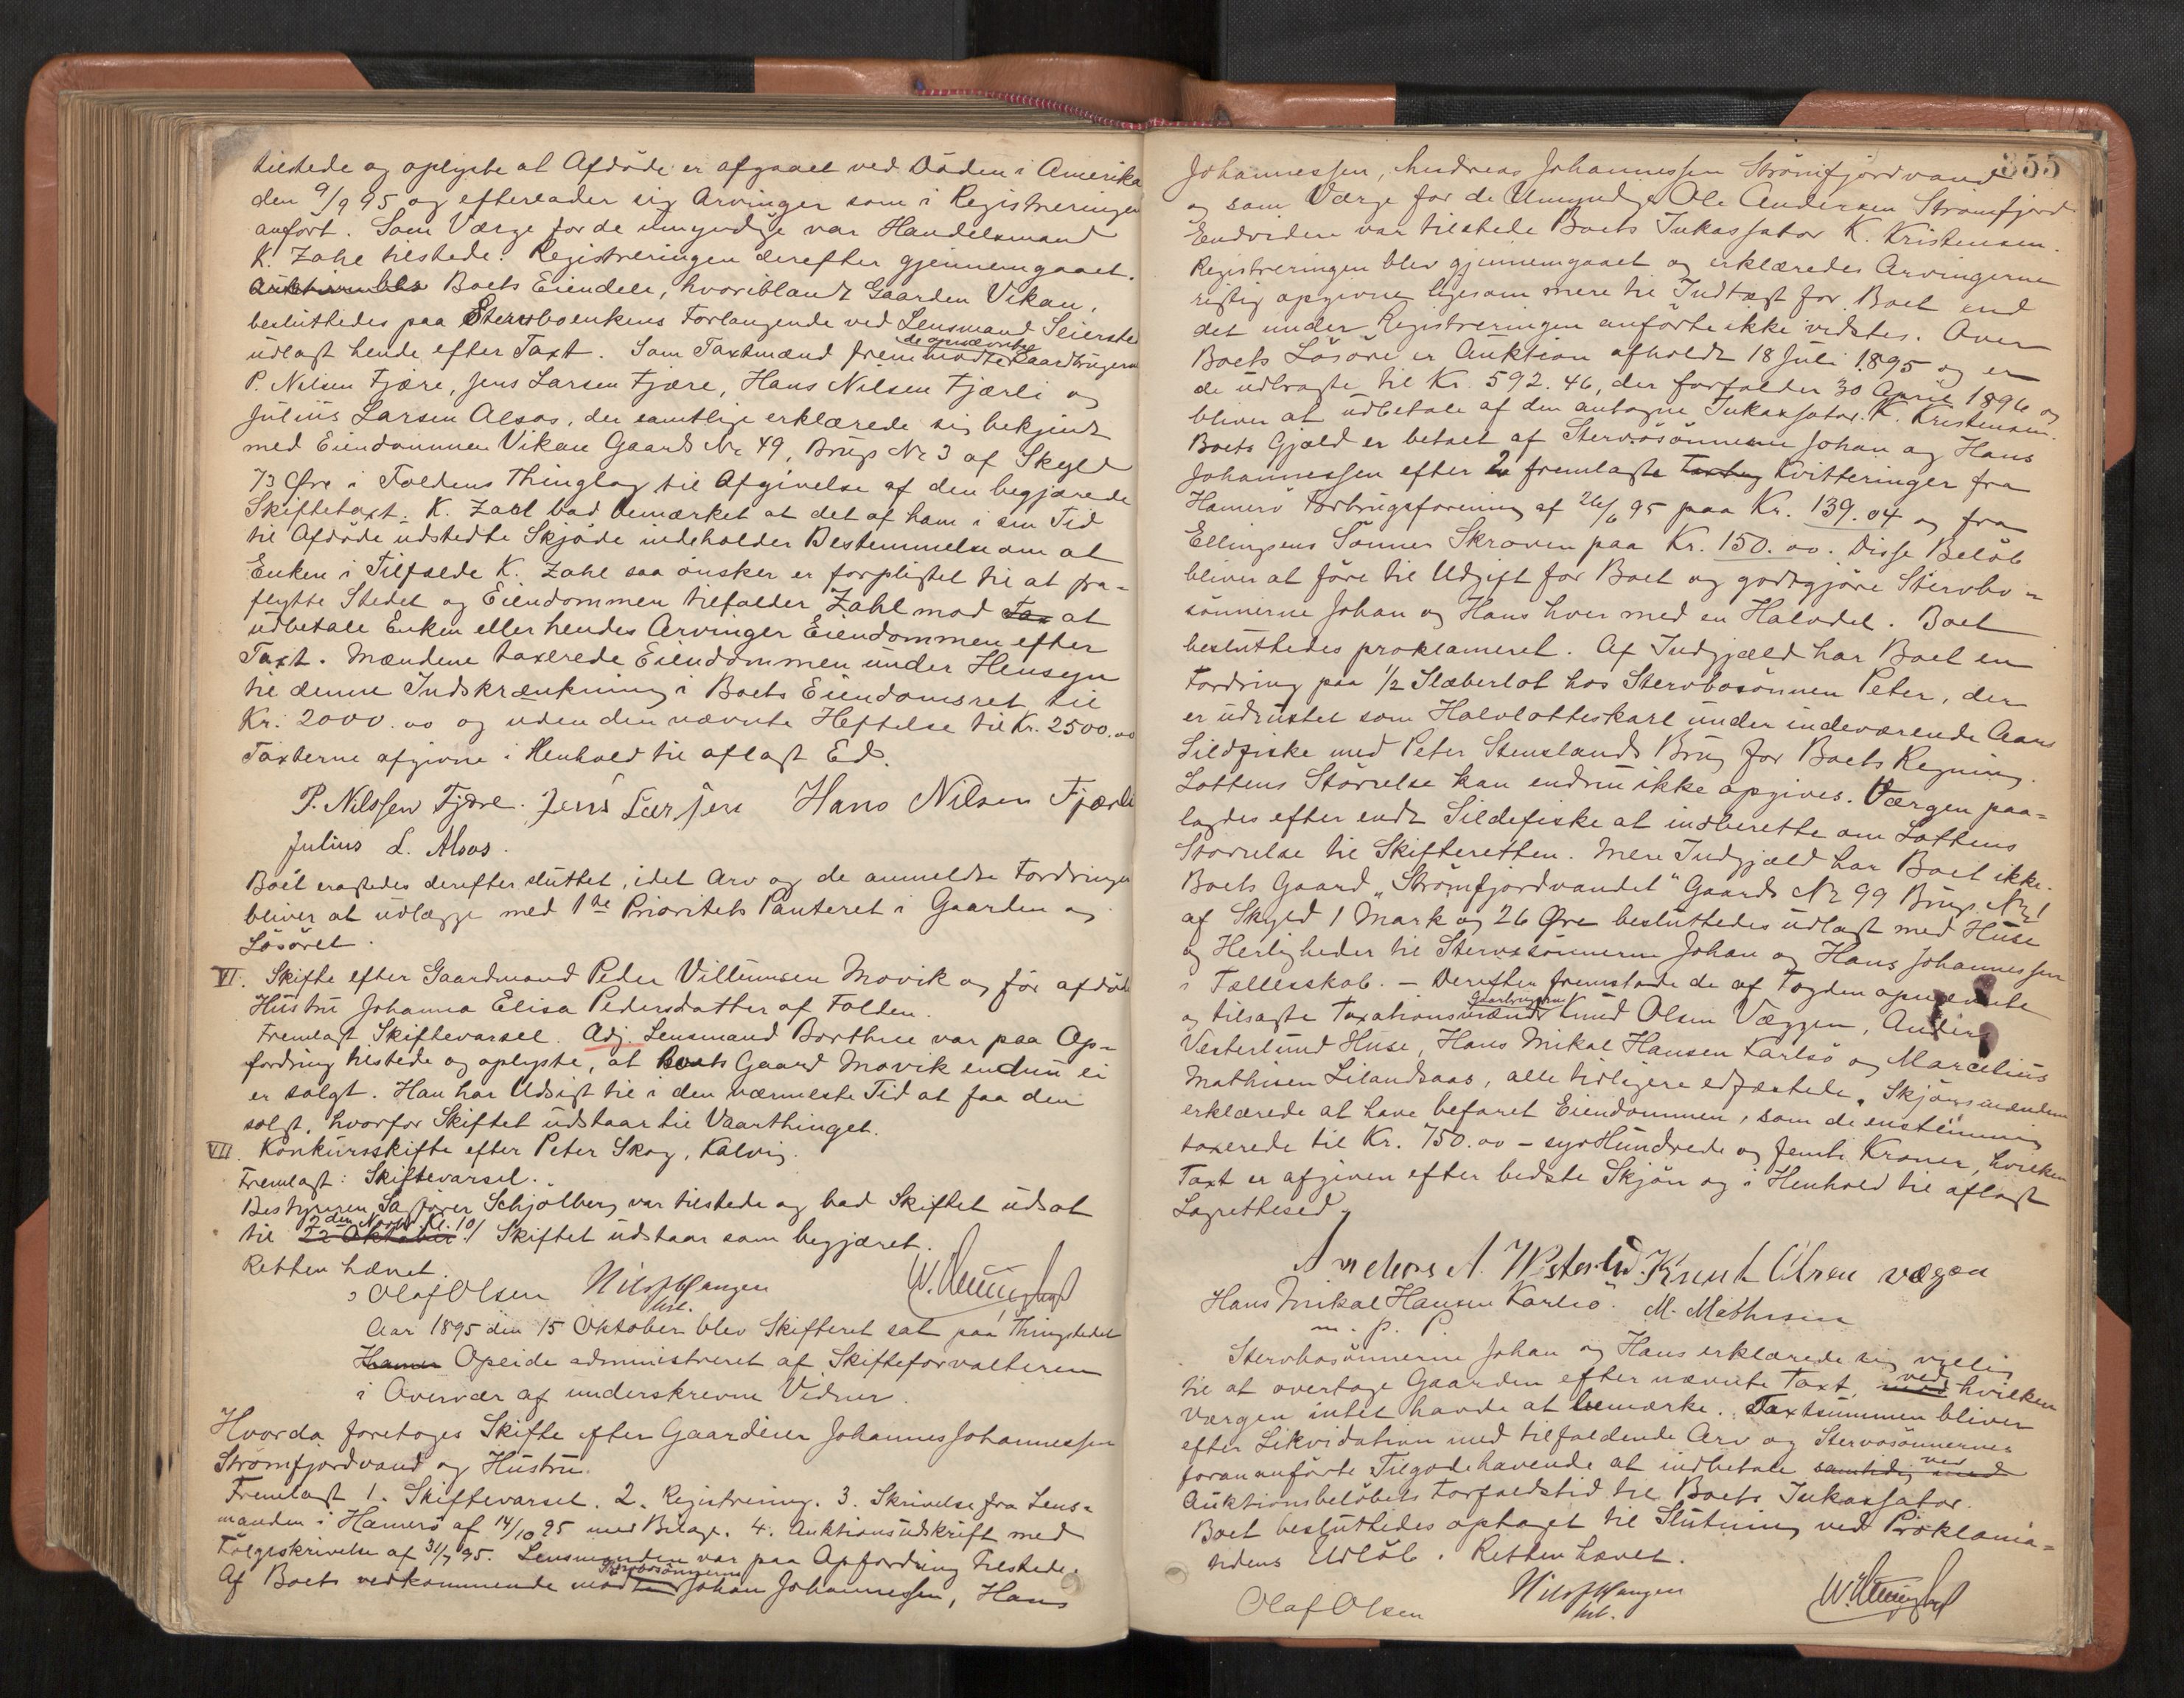 tilstede og oplyste at Afdöde er afgaaet ved Döden i Amerika
den 9/9 95 og efterlader sig Arvinger som i Registreringen
anfört. Som Værge for de umyndige var Handelsmand
K. Zahl tilstede. Registreringen derefter gjennemgaaet.
Auktion blev Boets Eiendele, hvoriblandt Gaarden Vikan,
besluttedes paa Stervboenkens Forlangende ved Lensmand Seiersted
udlagt hende efter Taxt. Som Taxtmænd fremmödte de opnævnte Gaardbrugere
P. Nilsen Fjære, Jens Larsen Fjære, Hans Nilsen Fjærli og
Julius Larsen Alsos, der samtlige erklærede sig bekjendt
med Eiendommen Vikan Gaards No 49, Brugs No 3 af Skyld
73 Øre i Foldens Thinglag til Afgivelse af den begjærede
Skiftetaxt. K. Zahl bad bemærket at det af ham i sin Tid
til Afdöde udstedte Skjöde indeholder Bestemmelse om at
Enken i Tilfælde K. Zahl saa önsker er forpligtet til at fra-
flytte Stedet og Eiendommen tilfalder Zahl mod Tax at
udbetale Enken eller hendes Arvinger Eiendommen efter
Taxt. Mændene taxerede Eiendommen under Hensyn
til denne Indskrænkning i Boets Eiendomsret til
Kr. 2000.00 og uden den nævnte Heftelse til Kr. 2500.00
Taxterne afgivne i Henhold til aflagt Ed.
P. Nilssen Fjære. Jens Larsen Hans Nilsen Fjærli
Julius L. Alsos.
Boet eragtedes derefter sluttet, idet Arv og de anmeldte Fordringer
bliver at udlægge med 1ste Prioritets Panteret i Gaarden og
Lösöret.
VI. Skifte efter Gaardmand Peder Villumsen Movik og för afdöde
Hustru Johanna Elisa Pedersdatter af Folden.
Fremlagt Skiftevarsel. Adj. Lensmand Borthne var paa Op-
fordring tilstede og oplyste, at Boets Gaard Movik endnu ei
er solgt. Han har Udsigt til i den nærmeste Tid at faa den
solgt, hvorfor Skiftet udstaar til Vaarthinget.
VII. Konkursskifte efter Peter Skog, Kalvig.
Fremlagt: Skiftevarsel.
Bestyreren, Sagförer Schjølberg var tilstede og bad Skiftet udsat
til 22 Oktober 2den Novbr. Kl. 10/ Skiftet udstaar som begjæret.
Retten hævet.
Olaf Olsen Nils Hangen
Aar 1895 den 15 Oktober blev Skifteret sat paa Thingstedet
Hamer Opeide administreret af Skifteforvalteren
i Overvær af underskrevne Vidner.
Hvorda foretoges Skifte efter Gaardeier Johannes Johannessen
Strömfjordvand og Hustru.
Fremlagt 1. Skiftevarsel. 2. Registrering. 3. Skrivelse fra Lens-
manden i Hamerö af 14/10 95 med Bilage. 4. Auktionsudskrift med
Fölgeskrivelse af 31/7 95. Lensmanden var paa Opfordring tilstede.
Af Boets vedkommende mödte Stervbosönnerne Johan Johannessen, Hans
355
Johannessen, Andreas Johannessen Strömfjordvand
og som Værge for de Umyndige Ole Andersen Strömfjord
Endvidere var tilstede Boets Inkassator K. Kristensen.
Registreringen blev gjennemgaaet og erklæredes Arvingerne
rigtig opgivne ligesom mere til Indtægt for Boet end
det under Registreringen anförte ikke vidstes. Over
Boets Lösöre er Auktion afholdt 18 Juli 1895 og er
de udbragte til Kr. 592.46, der forfalder 30 April 1896 og
bliver at udbetale af den antagne Inkassator K. Kristensen.
Boets Gjæld er betalt af Stervbosönnerne Johan og Hans
Johannessen efter 2 fremlagte Kvitteringer fra
Hamerö Forbrugsforening af 26/6 95 paa Kr. 139.04 og fra
Ellingsens Sönner Skroven paa Kr. 150.00. Disse Belöb
bliver at före til Udgift for Boet og godtgjöre Stervbo-
sönnerne Johan og Hans hver med en Halvdel. Boet
besluttedes proklameret. Af Indgjæld har Boet en
Fordring paa 1/2 Slæberlot hos Stervbosönnen Peter, der
er udrustet som Halvlotteskarl under indeværende Aars
Sildfiske med Peter Stenslands Brug for Boets Regning.
Lottens Störrelse kan endnu ikke opgives. Værgen paa-
lagdes efter endt Sildefiske at indberette om Lottens
Störrelse til Skifteretten. Mere Indgjæld har Boet ikke.
Boets Gaard „Strömfjordvandet“ Gaards No 99 Brugs No 1
af Skyld 1 Mark og 26 Øre besluttedes udlagt med Huse
og Herligheder til Stervbosönnerne Johan og Hans Johannessen
i Fællesskab. – Derefter fremstode de af Fogden opnævnte
og tilsagte Taxationsmænd Gaardbrugerne Knud Olsen Væggen, Anders
Vesterlund Huse, Hans Mikal Hansen Karlsö og Marcelius
Mathisen Lilandsaas, alle tidligere edfæstede. Skjönsmændene
erklærede at have befaret Eiendommen, som de enstemmig
taxerede til Kr. 750.00 – syv Hundrede og femti Kroner, hvilken
Taxt er afgiven efter bedste Skjön og i Henhold til aflagt
Lagrettesed.
Anders A. Vesterlund. Knut Olsen vægen
Hans Mikal Hansen Karlsö. M. Mathisen
m. p. P.
Stervbosönnerne Johan og Hans erklærede sig villig
til at overtage Gaarden efter nævnte Taxt, mod ved hvilken
Værgen intet havde at bemærke. Taxtsummen bliver
efter Likvidation med tilfaldende Arv og Stervbosönnernes
forananförte Tilgodehavende at indbetale samtidig med ved
Auktionsbelöbets Forfaldstid til Boets Inkassator.
Boet besluttedes optaget til Slutning ved Proklama-
tidens Udlöb. Retten hævet.
Olaf Olsen Nils Hangen